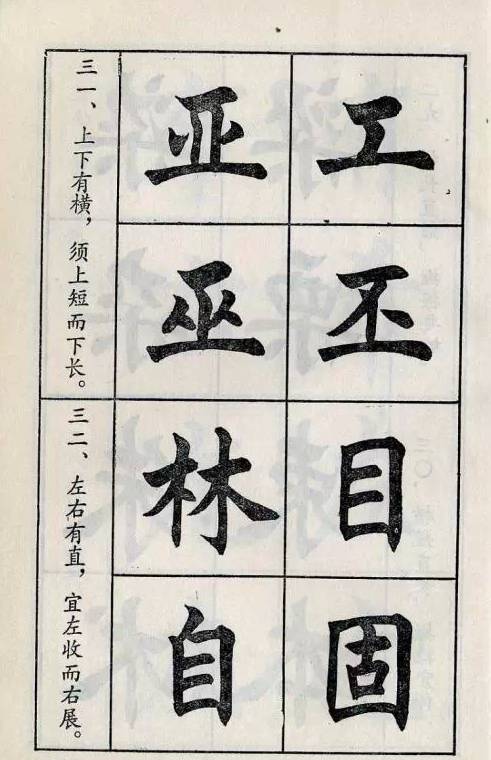 三一、上下有横，须上短而下长。
工
丕
亚
巫
三二、左右有直，宜左收而右展。
目
固
林
自